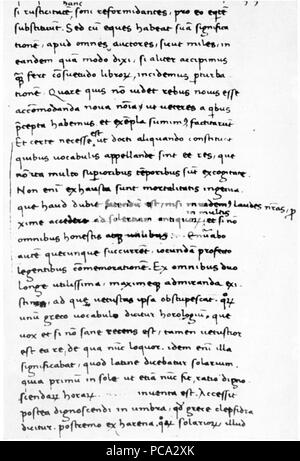 hanc
si rusticitatẽ soni reformidantes, pro eo equitẽ
substituunt. Sed cũ eques habeat suã significa
tionẽ, apud omnes auctores, sicut miles, in
eandem quã modo dixi, si aliter accipimus
fere cõsuetudo libroꝝ, incidemus pturba
tionẽ. Quare qus nõ videt rebus novis esse
accomodanda nova nõĩa? ut veteres a qbus
p̃cepta habemus et exẽpla sumim⁹ factitarũt
est
Et certe necesse ut docti aliquando constitu
quibus vocabulis appellande sint ee res, que
nõ ita multo superioribus tẽporibus sũt excogitate.
Non enĩ exhausta sunt mortalitatis ingenia.
que haud dubie fatendũ est, nisi invadem⁹ laudes nr̃as, p
in multis
xime accedere ad solertiam antiquoꝝ, et si nõ
omnibus honestis atqꝫ utilibus. Enũ abo
autẽ quecunque succurrẽt. iocundã profecto
legentibus cõmemorationẽ. Ex omnibus duo
longe utilissima, maximeqꝫ admiranda exi
stimo, ad que vetustas ipsa obstupescat. quoꝝ
unũ greco vocabulo dicitur horologiũ, que
vox et si nõ sane recens est, tamen vetustior
est ea re, de qua nũc loquor. idem enĩ illa
significabat, quod latine dicebatur solarium.
quia primũ in sole ut etiã nũc fit, ratio digno
scendaꝝ horaꝝ inventa est. Accessit
postea dignoscendi in umbra, qđ grece clepsidra
dicitur. postremo ex harena. quoꝝ solarioꝝ illud